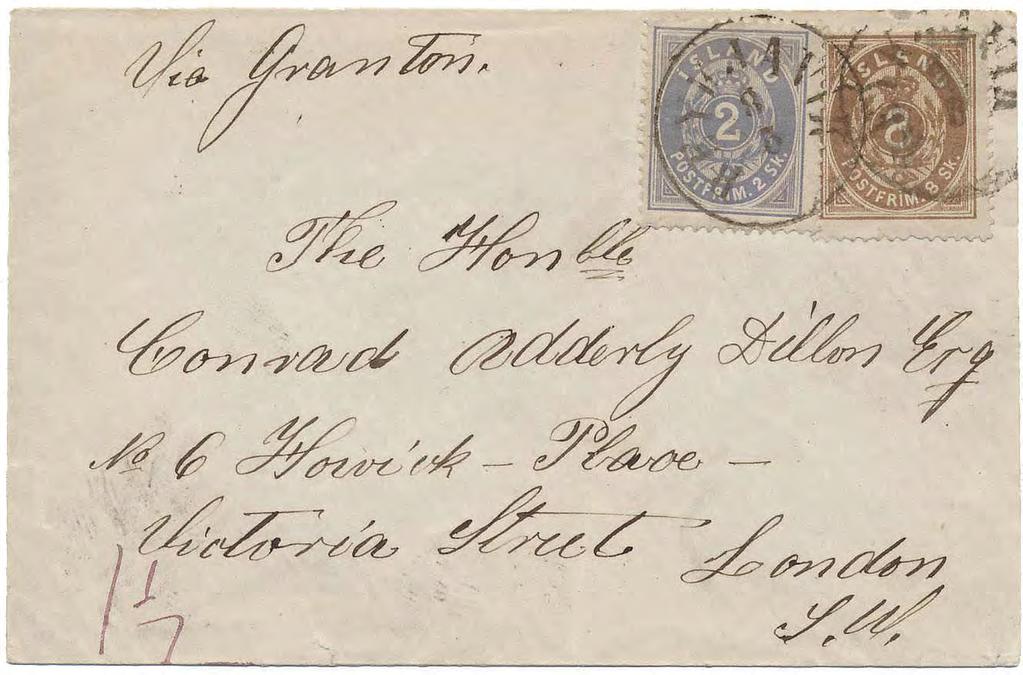 Via Granton.
ISLAND
2
POSTFRIM. 2 SK.
ISLAND
8
POSTFRIM. 8 SK.
The Honble
Conrad Adderly Dillon Esq
No 6 Howick – Place –
Victoria Street London
S.W.